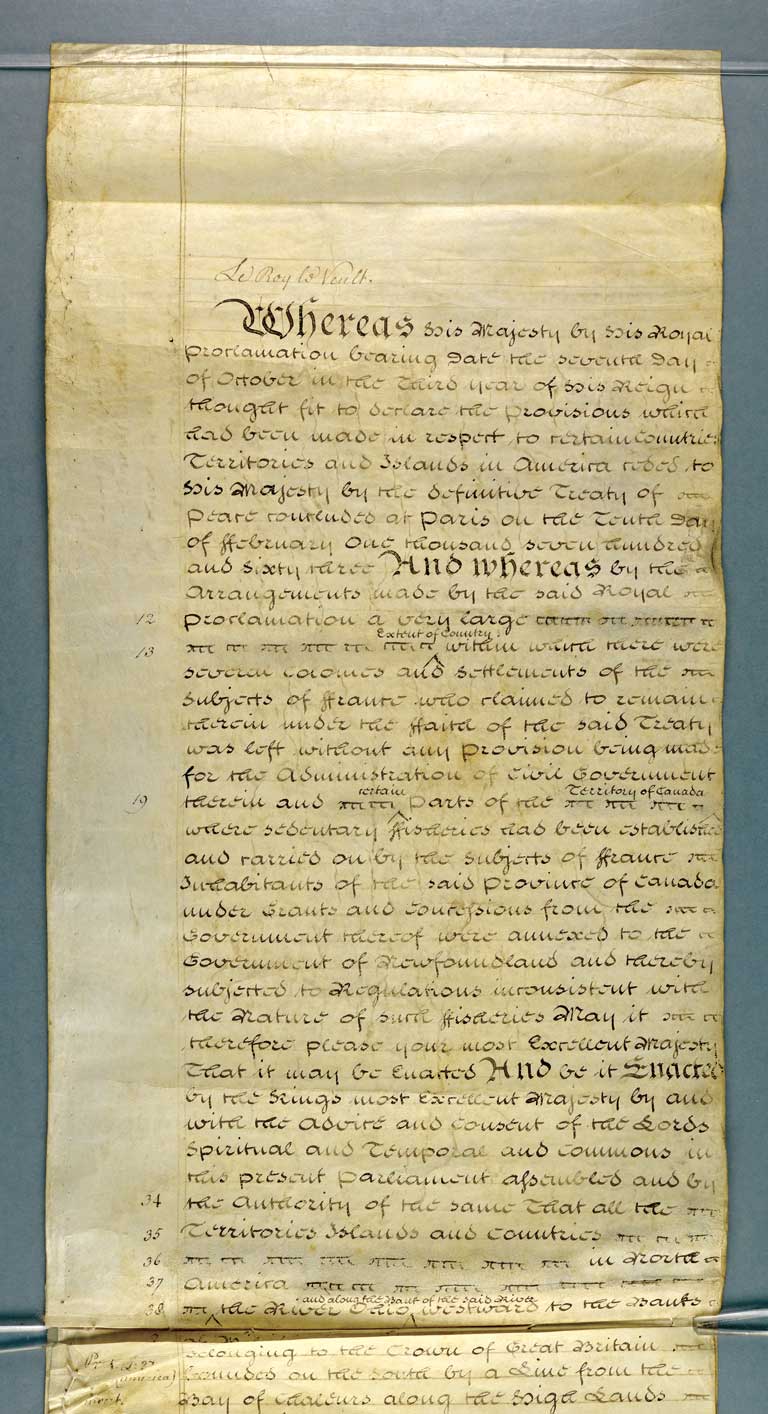 Le Roy le Veult.
Whereas His Majesty by His Royal
Proclamation bearing Date the seventh Day
of October in the Third year of His Reign
thought fit to declare the Provisions which
had been made in respect to certain Countries
Territories and Islands in America ceded to
His Majesty by the definitive Treaty of
Peace concluded at Paris on the Tenth Day
of ffebruary One thousand seven hundred
and Sixty three And whereas by the
Arrangements made by the said Royal
12 Proclamation a very large
Extent of Country
13 within which there were
several Colonies and Settlements of the
Subjects of ffrance who claimed to remain
therein under the ffaith of the said Treaty
was left without any Provision being made
for the Administration of Civil Government
certain Territory of Canada
19 therein and Parts of the
where sedentary ffisheries had been established
and carried on by the Subjects of ffrance
Inhabitants of the said Province of Canada
under Grants and Concessions from the
Government thereof were annexed to the
Government of Newfoundland and thereby
subjected to Regulations inconsistent with
the Nature of such ffisheries May it
therefore please your most Excellent Majesty
That it may be Enacted And be it Enacted
by the Kings most Excellent Majesty by and
with the Advice and Consent of the Lords
Spiritual and Temporal and Commons in
this present Parliament assembled and by
34 the Authority of the same That all the
35 Territories Islands and Countries
36 in North
37 America
and along the Bank of the said River
38 the River Ohio westward to the Banks
belonging to the Crown of Great Britain
bounded on the South by a Line from the
(America)
Bay of Chaleurs along the High Lands